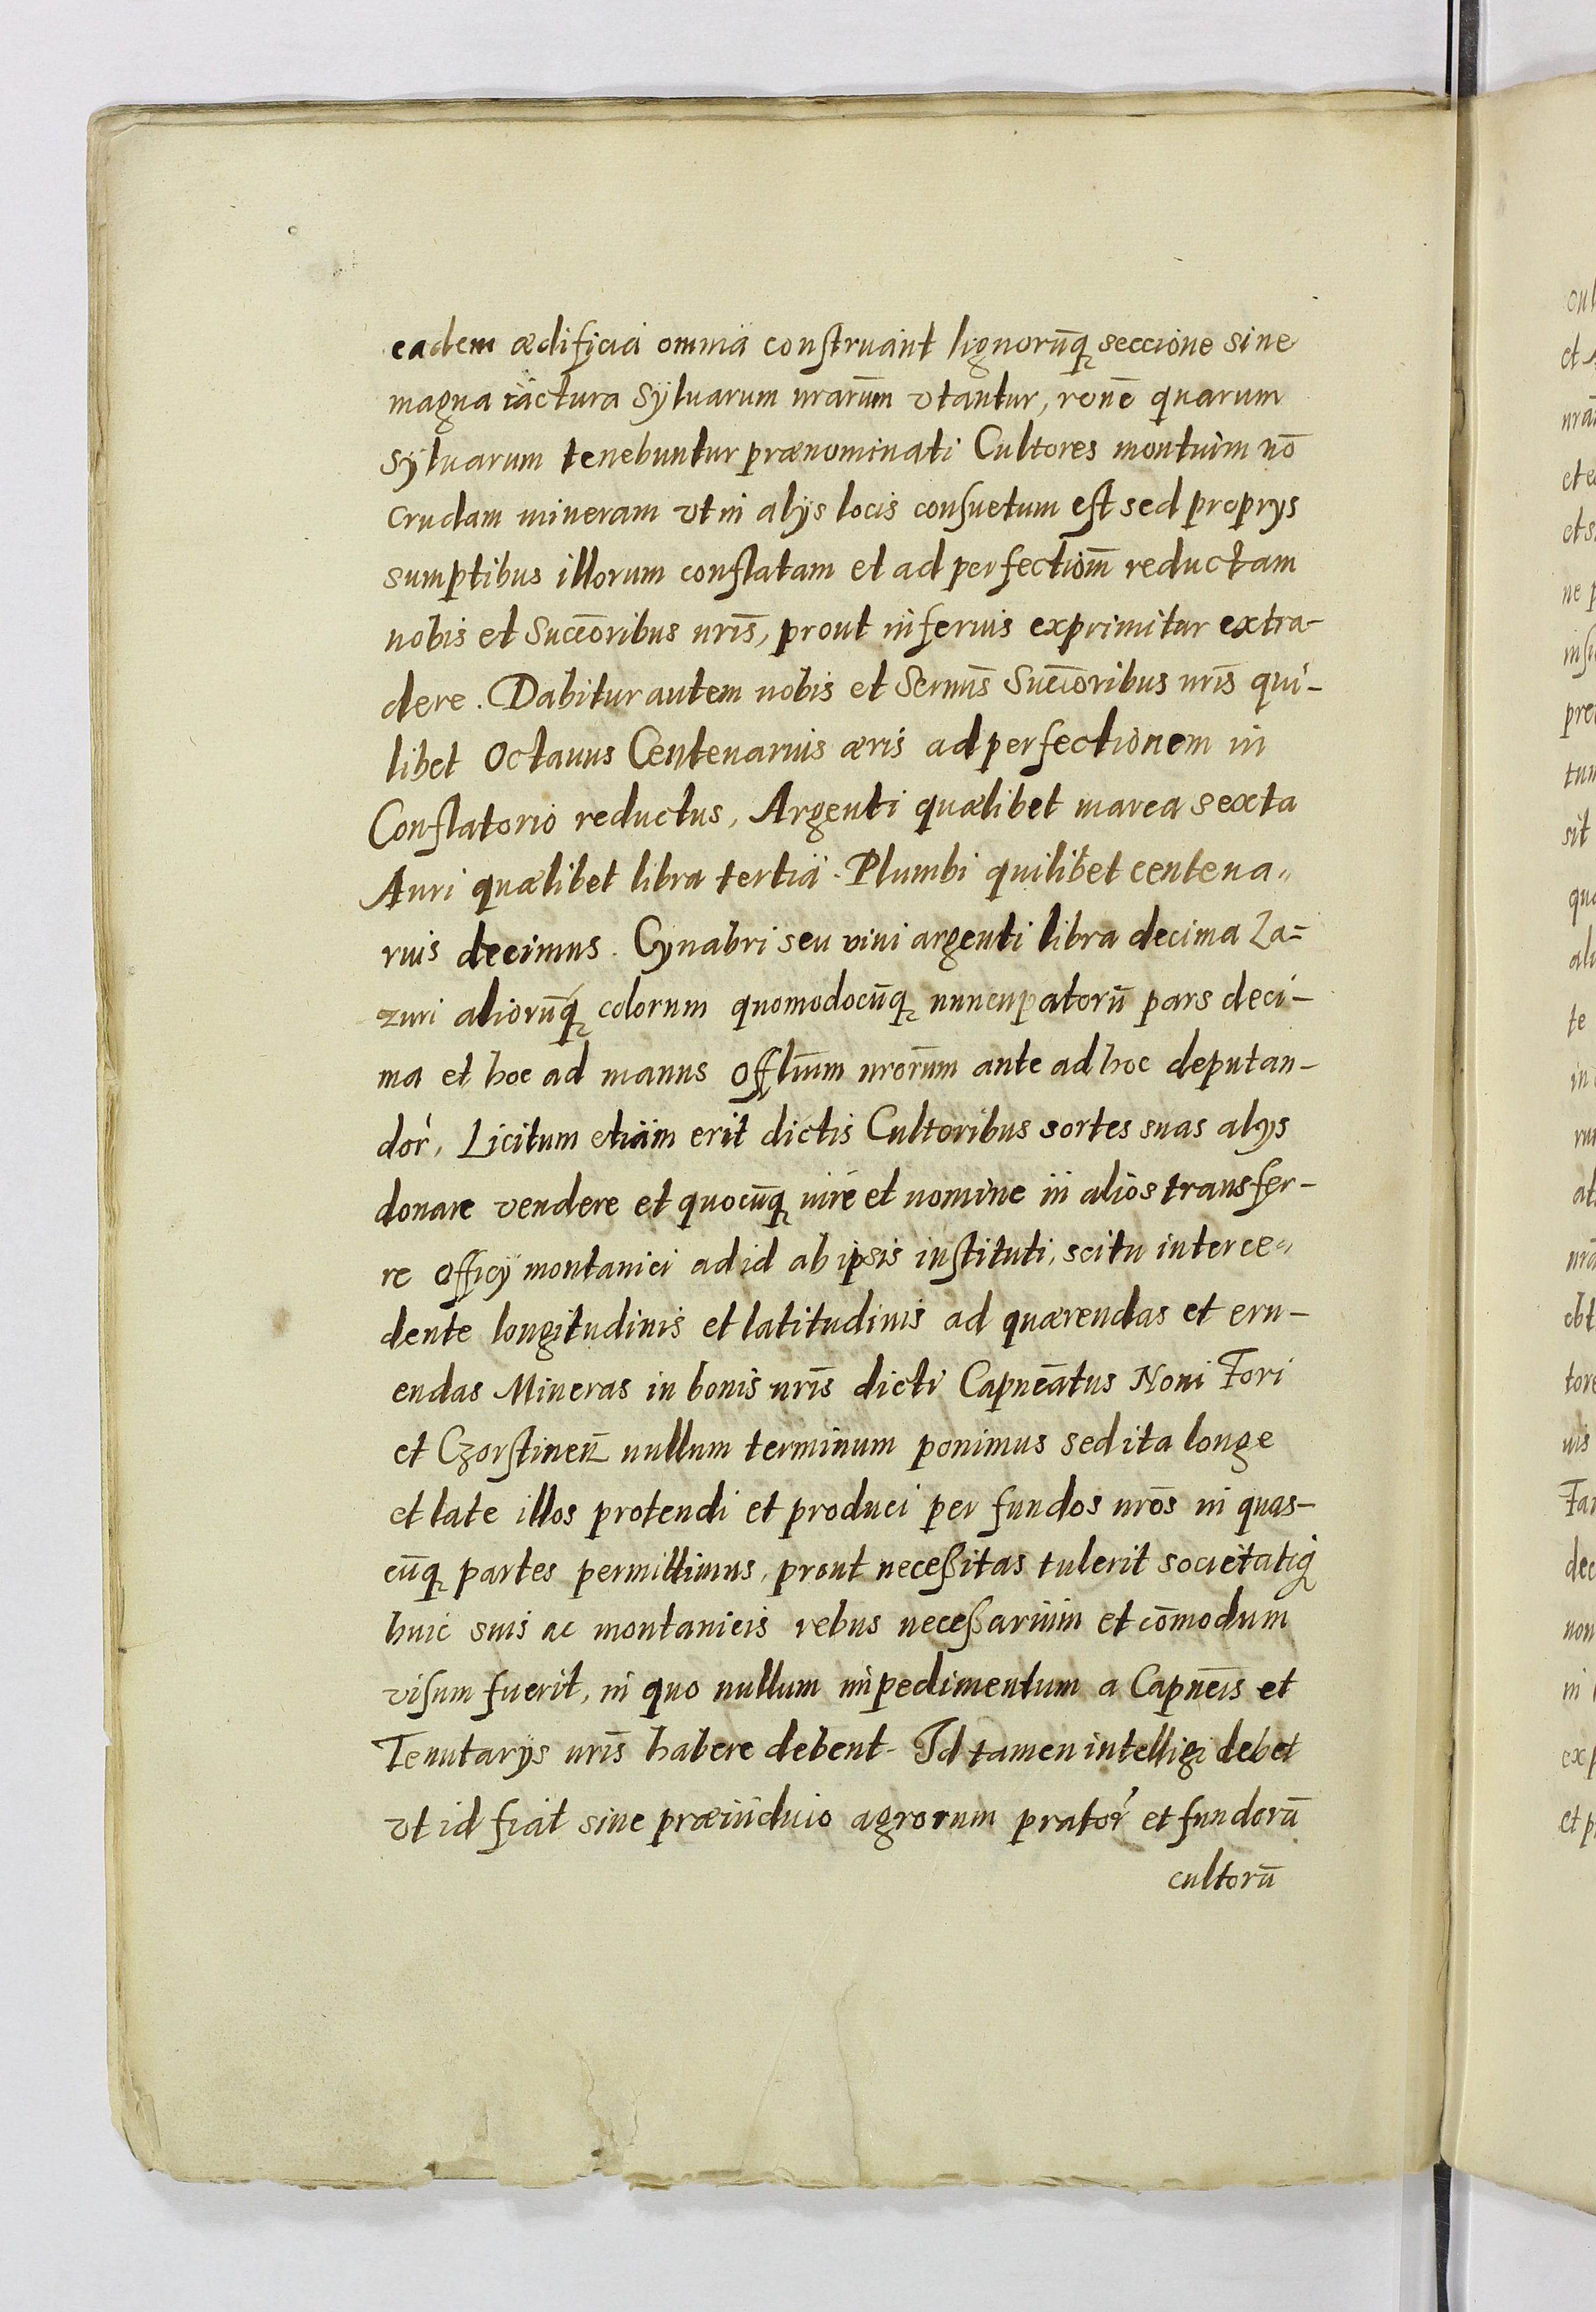 eadem ædificia omnia construant lignorūq seccione sine
magna iactura Sÿluarum nrarūm vtantur, ronē quarum
Sÿluarum tenebuntur prænominati Cultores montium nō
crudam mineram vt in alijs locis consuetum est sed proprijs
sumptibus illorum conflatam et ad perfectiōm̄ reductam
nobis et Succōribus nrīs, prout inferius exprimitur extra-
dere. Dabitur autem nobis et Sermīs Succōribus nrīs qui-
libet Octauus Centenarius æris ad perfectionem in
Conflatorio reductus, Argenti quælibet marca sexta
Auri quælibet libra tertia. Plumbi quilibet centena„
rius decimus. Cynabri seu viui argenti libra decima La=
zuri aliorūq colorum quomodocūq nuncupatorū pars deci-
ma et hoc ad manus Offlīum nrorūm ante ad hoc deputan-
dor, Licitum etiam erit dictis Cultoribus sortes suas alijs
donare vendere et quocūq iure et nomine in alios transfer-
re officÿ montanici ad id ab ipsis instituti, scitu interce„
dente longitudinis et latitudinis ad quærendas et eru-
endas Mineras in bonis nrīs dicti Capneātus Noui Fori
et Czorstineñ nullum terminum ponimus sed ita longe
et late illos protendi et produci per fundos nrōs in quas-
cūq partes permittimus, prout neceßitas tulerit societatiq
huic suis ac montanicis rebus neceßarium et cōmodum
visum fuerit, in quo nullum impedimentum a Capneīs et
Tenutarijs nrīs habere debent. Id tamen intelligi debet
vt id fiat sine præiuduio agrorum prator et fundorū
cultorū